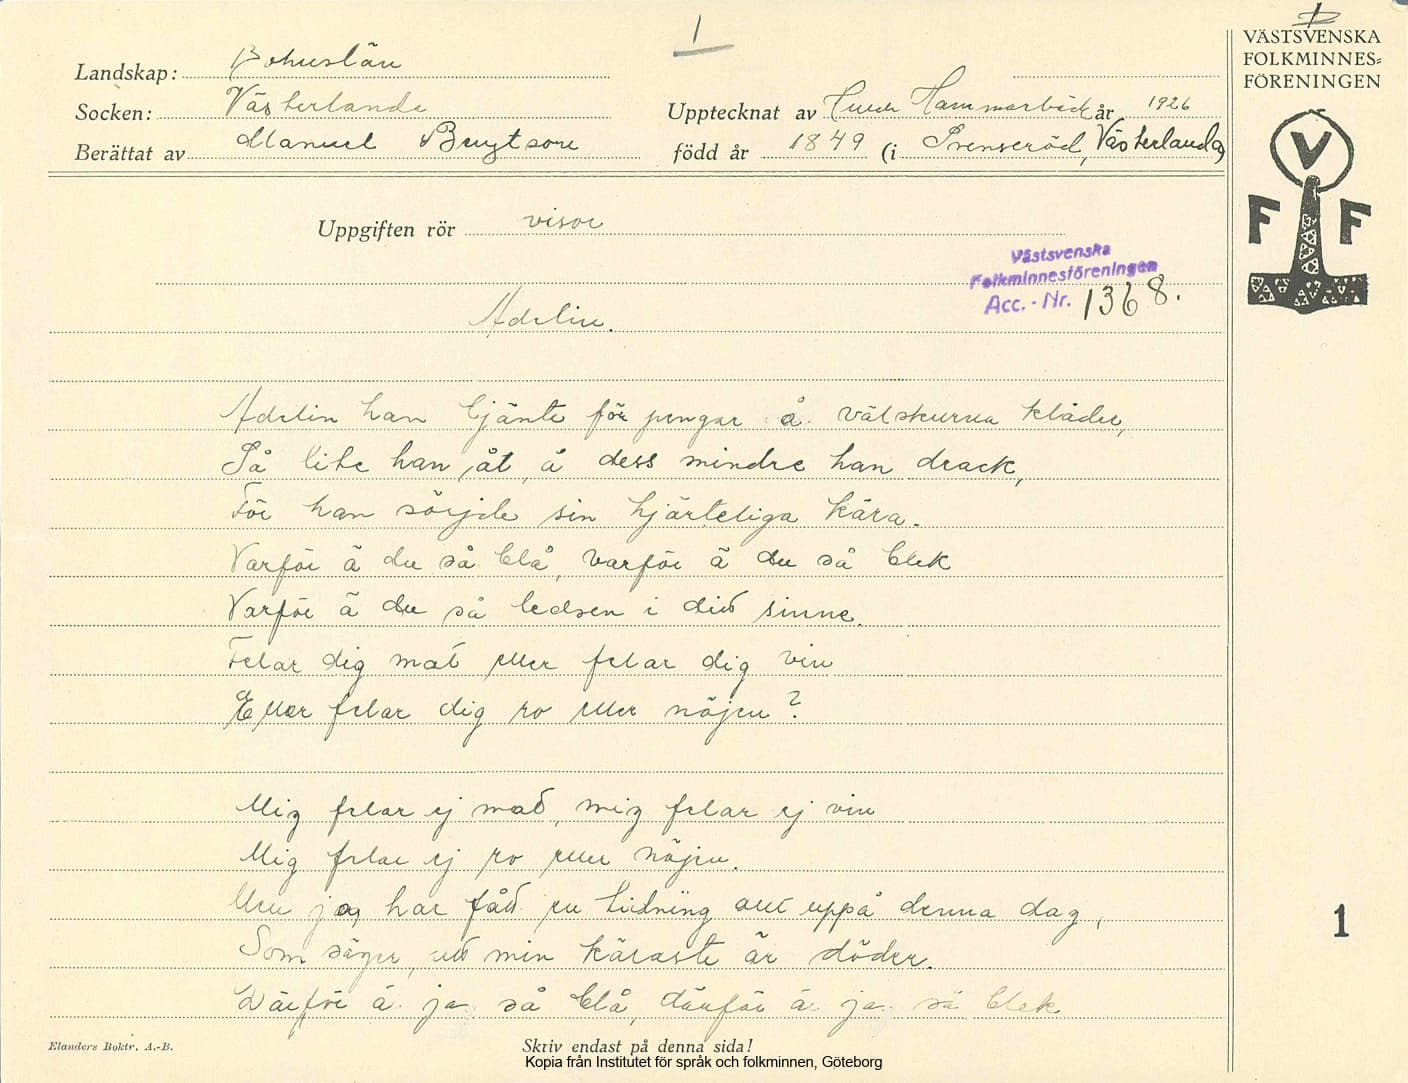 1
VÄSTSVENSKA
FOLKMINNES=
FÖRENINGEN
V
F F
Landskap: Bohuslän
Socken: Västerlanda
Upptecknat av Hammarbäck år 1926
Berättat av Manuel Bengtson
född år 1849 (i Svenseröd, Västerlanda)
Uppgiften rör visor
Västsvenska
Folkminnesföreningen
Acc. - Nr. 1368.
Adelin.
Adelin han tjänte för pengar å välskurna kläder,
Så lite han åt, å dess mindre han drack,
För han sörjde sin hjärteliga kära.
Varför ä du så blå, varför ä du så blek
Varför ä du så ledsen i ditt sinne.
Felar dig mat eller felar dig vin
Eller felar dig ro eller nöjen?
Mig felar ej mat, mig felar ej vin
Mig felar ej ro eller nöjen.
Men jag har fått en tidning allt uppå denna dag,
Som säger, att min käraste är döder.
Därför ä ja så blå, därför ä ja så blek
1
Elanders Boktr. A.-B.
Skriv endast på denna sida!
Kopia från Institutet för språk och folkminnen, Göteborg